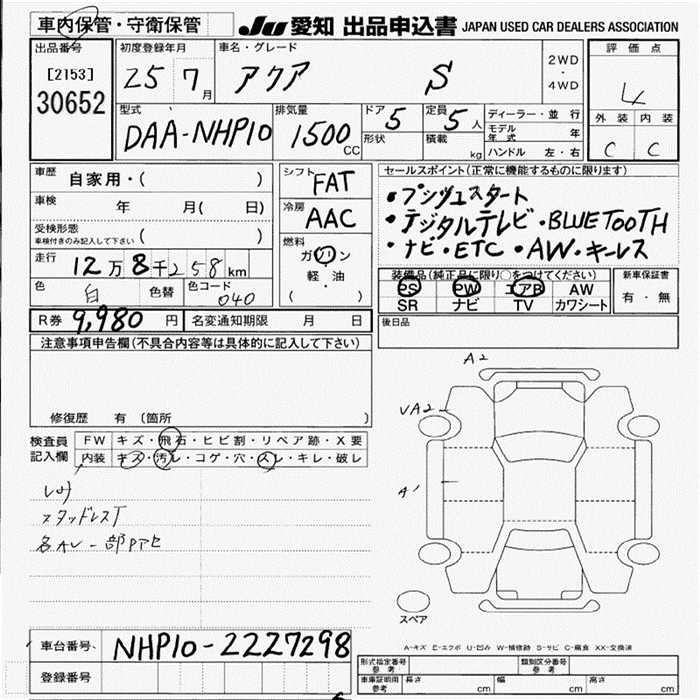 車内保管・守衛保管 JU 愛知 出品申込書 JAPAN USED CAR DEALERS ASSOCIATION
出品番号 初度登録年月 車名・グレード 評価点
[2153] 25 7月 アクア S 2WD・4WD 4
30652
型式 排気量 ドア 5 定員 5人 ディーラー・並行 外装 内装
DAA-NHP10 1500CC 形状 積載 kg モデル年式 年 C C
ハンドル 左・右
車歴 自家用・( ) シフト FAT セールスポイント(正常に機能するものに限ります)
車検 年 月( 日) 冷房 AAC ・プッシュスタート
受検形態 ( ) ・デジタルテレビ・BLUETOOTH
車検付きのみ記入して下さい 燃料 ・ナビ・ETC・AW・キーレス
走行 12万8千258km ガソリン
軽・油
( )
色 白 色替 色コード 040
装備品(純正品に限り○をつけてください) 新車保証書
PS PW エアB AW 有・無
SR ナビ TV カワシート
R券 9,980円 名変通知期限 月 日 後日品
注意事項申告欄(不具合内容等は具体的に記入して下さい)
修復歴 有 (箇所 )
検査員記入欄 FW キズ・飛石・ヒビ割・リペア跡・X要
内装 キズ・汚レ・コゲ・穴・スレ・キレ・破レ
スタッドレスT
A2
A1
スペア
A-キズ E-エクボ U-凹み W-補修跡 S-サビ C-腐食 XX-交換済
車台番号 NHP10-2227298
登録番号
形式指定番号 参考 類別区分番号 参考
車庫証明用 参考 長さ cm 幅 cm 高さ cm